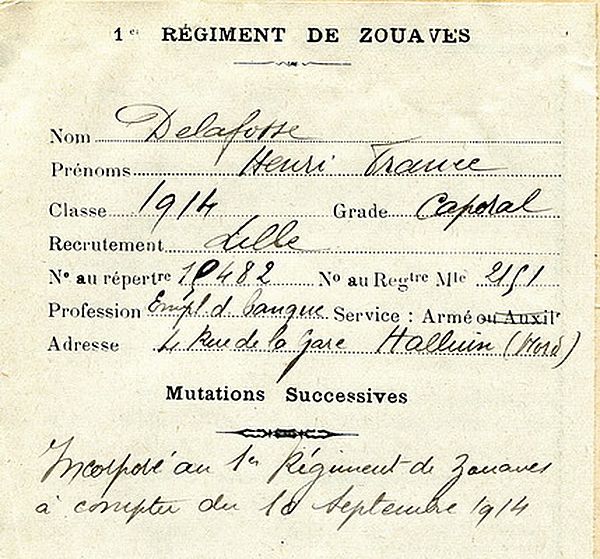 1er RÉGIMENT DE ZOUAVES
Nom Delafosse
Prénoms Henri France
Classe 1914 Grade Caporal
Recrutement Lille
No au répertre 10482 No au Regtre Mle 2151
Profession Empl d banque Service : Armé ou Auxilre
Adresse 4 Rue de la Gare Halluin (Nord)
Mutations Successives
Incorporé au 1er Régiment de Zouaves
à compter du 10 Septembre 1914